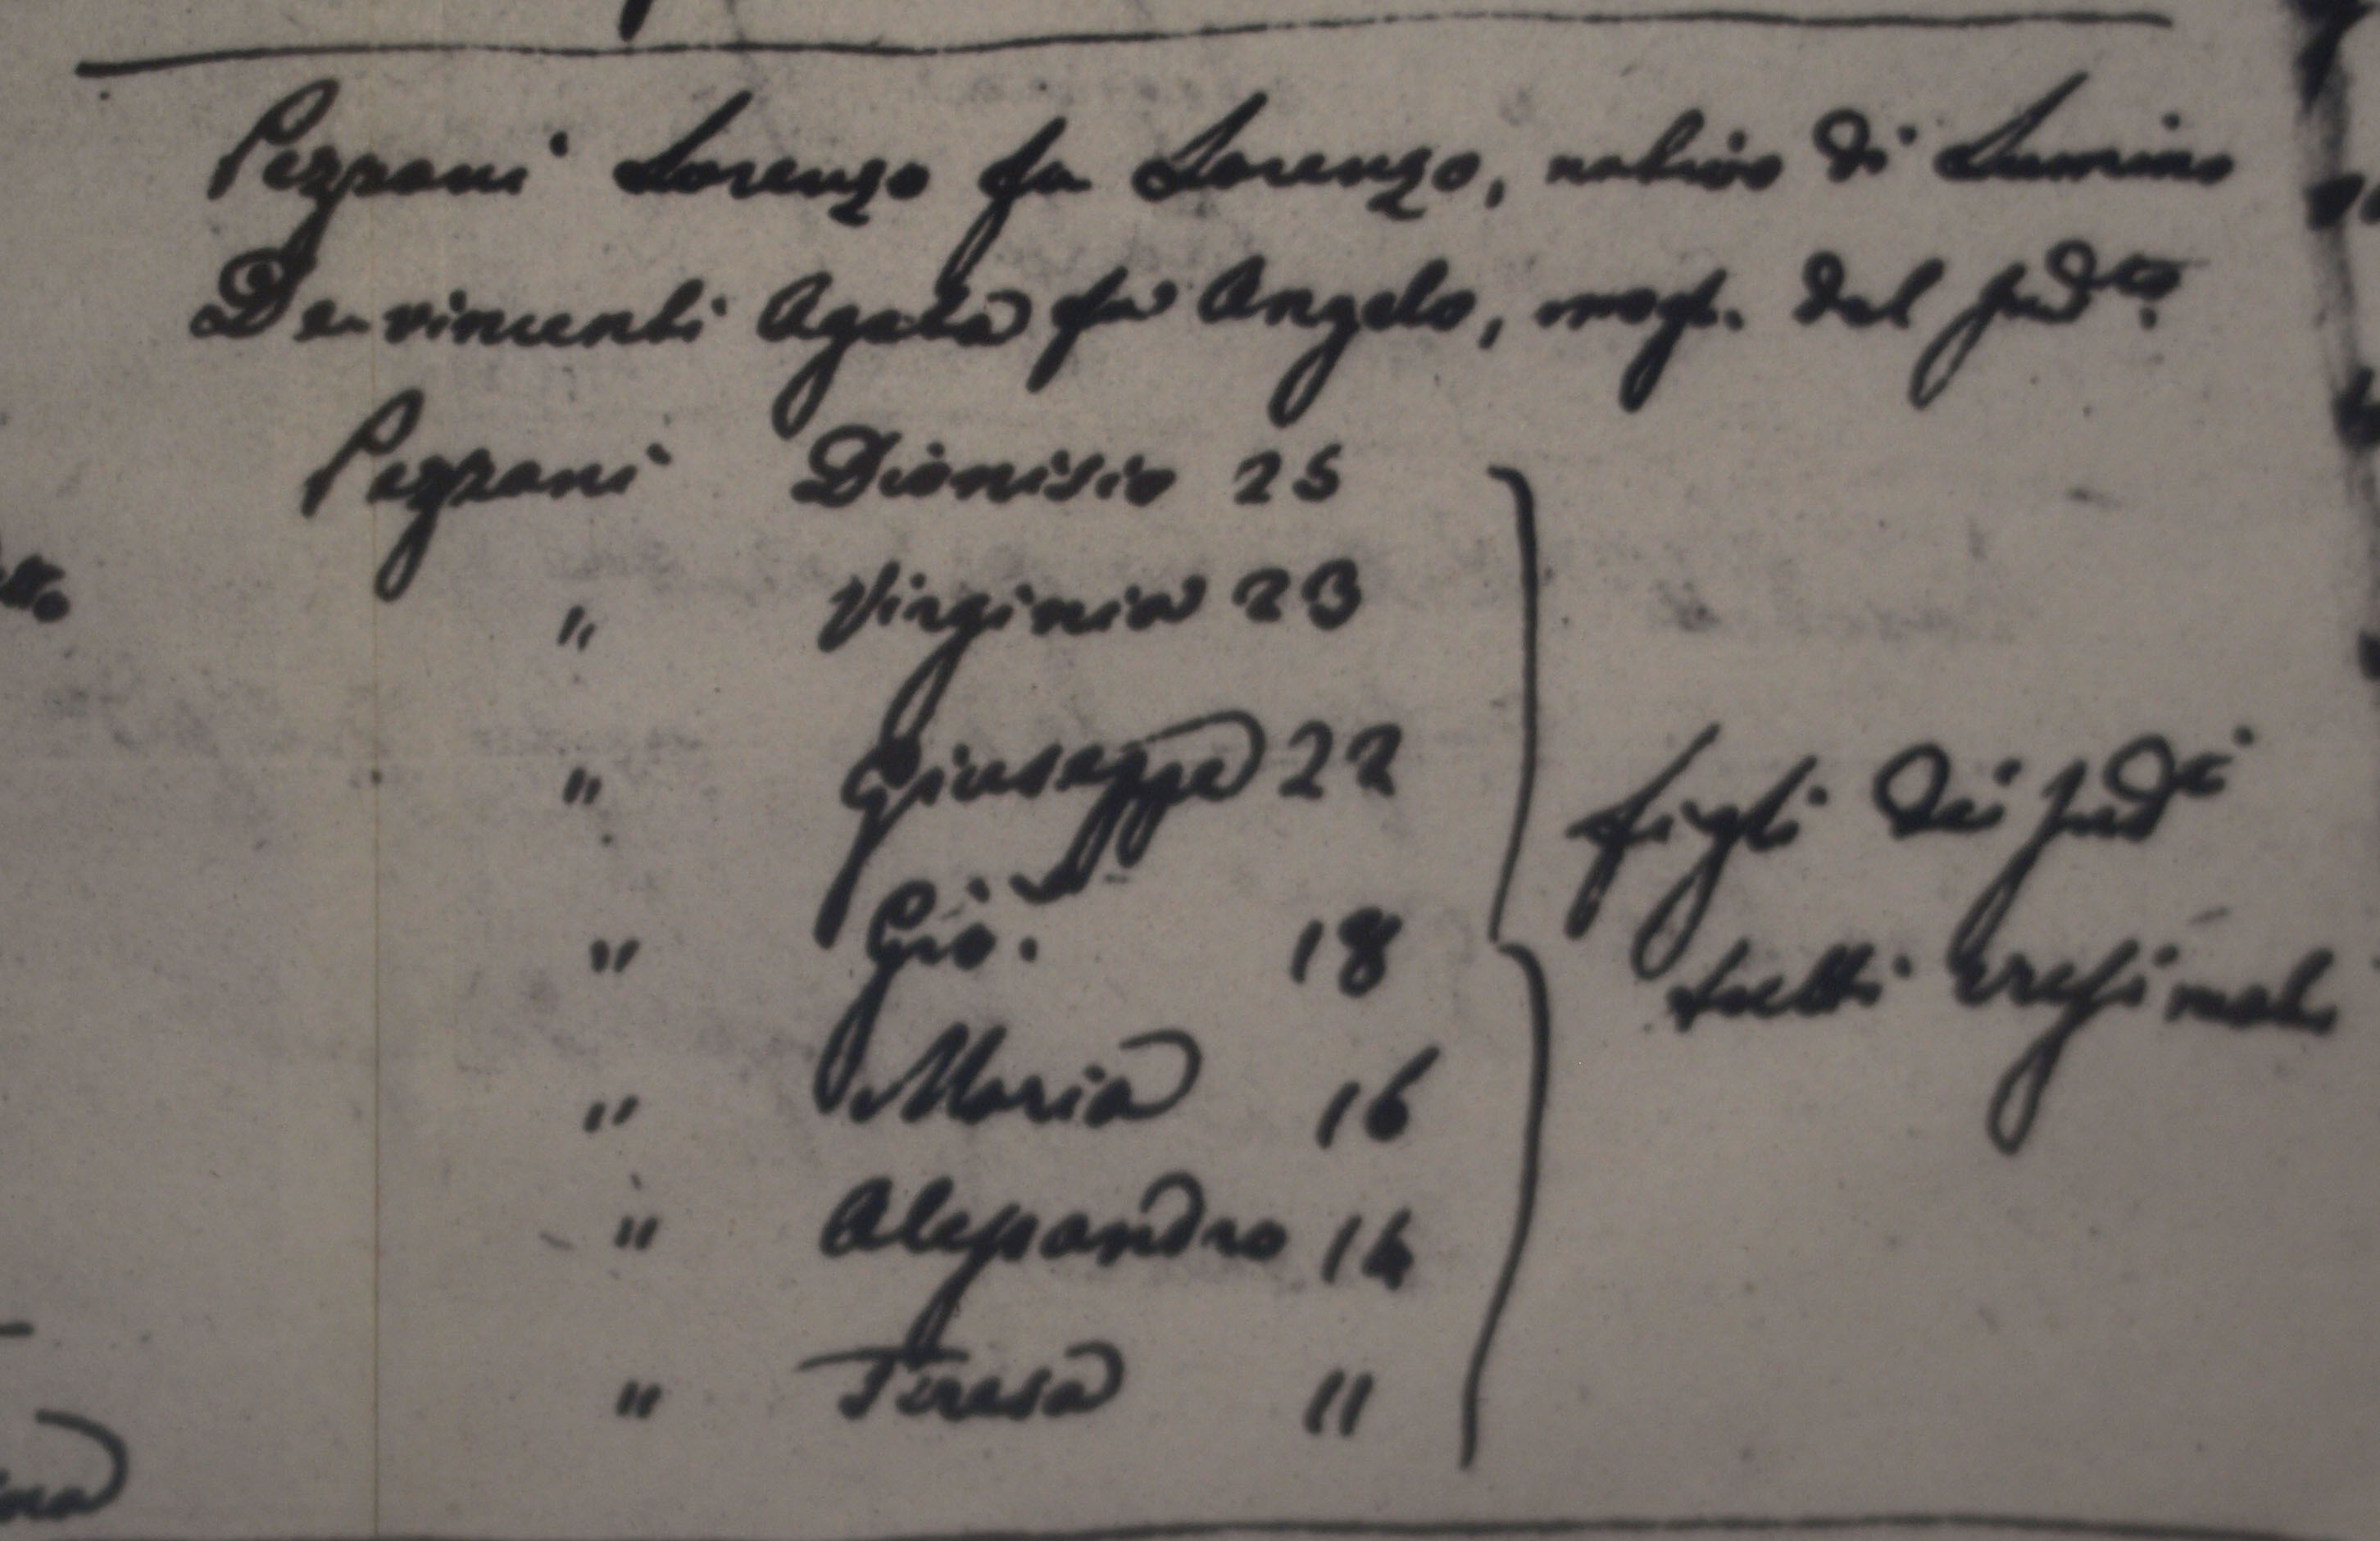 Pezzani Lorenzo fu Lorenzo, nativo di Lumino
De-vincenti Agata fu Angelo, mogl. del sud.to
Pezzani Dionisio 25
" Virginia 23
" Giuseppe 22
" Gio. 18
" Maria 16
" Alessandro 14
" Teresa 11
figli dei sud.ti
tutti